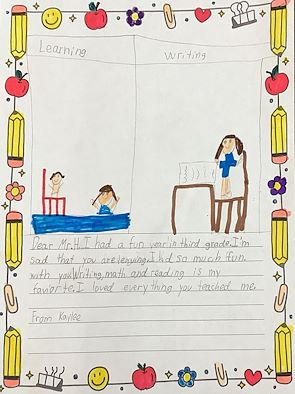 Learning
Writing
Dear Mr.H.I had a fun year in third grade.I'm
sad that you are leaving.I had so much fun
with you.Writing,math and reading is my
favorite.I loved everything you taught me.
From Kaylee